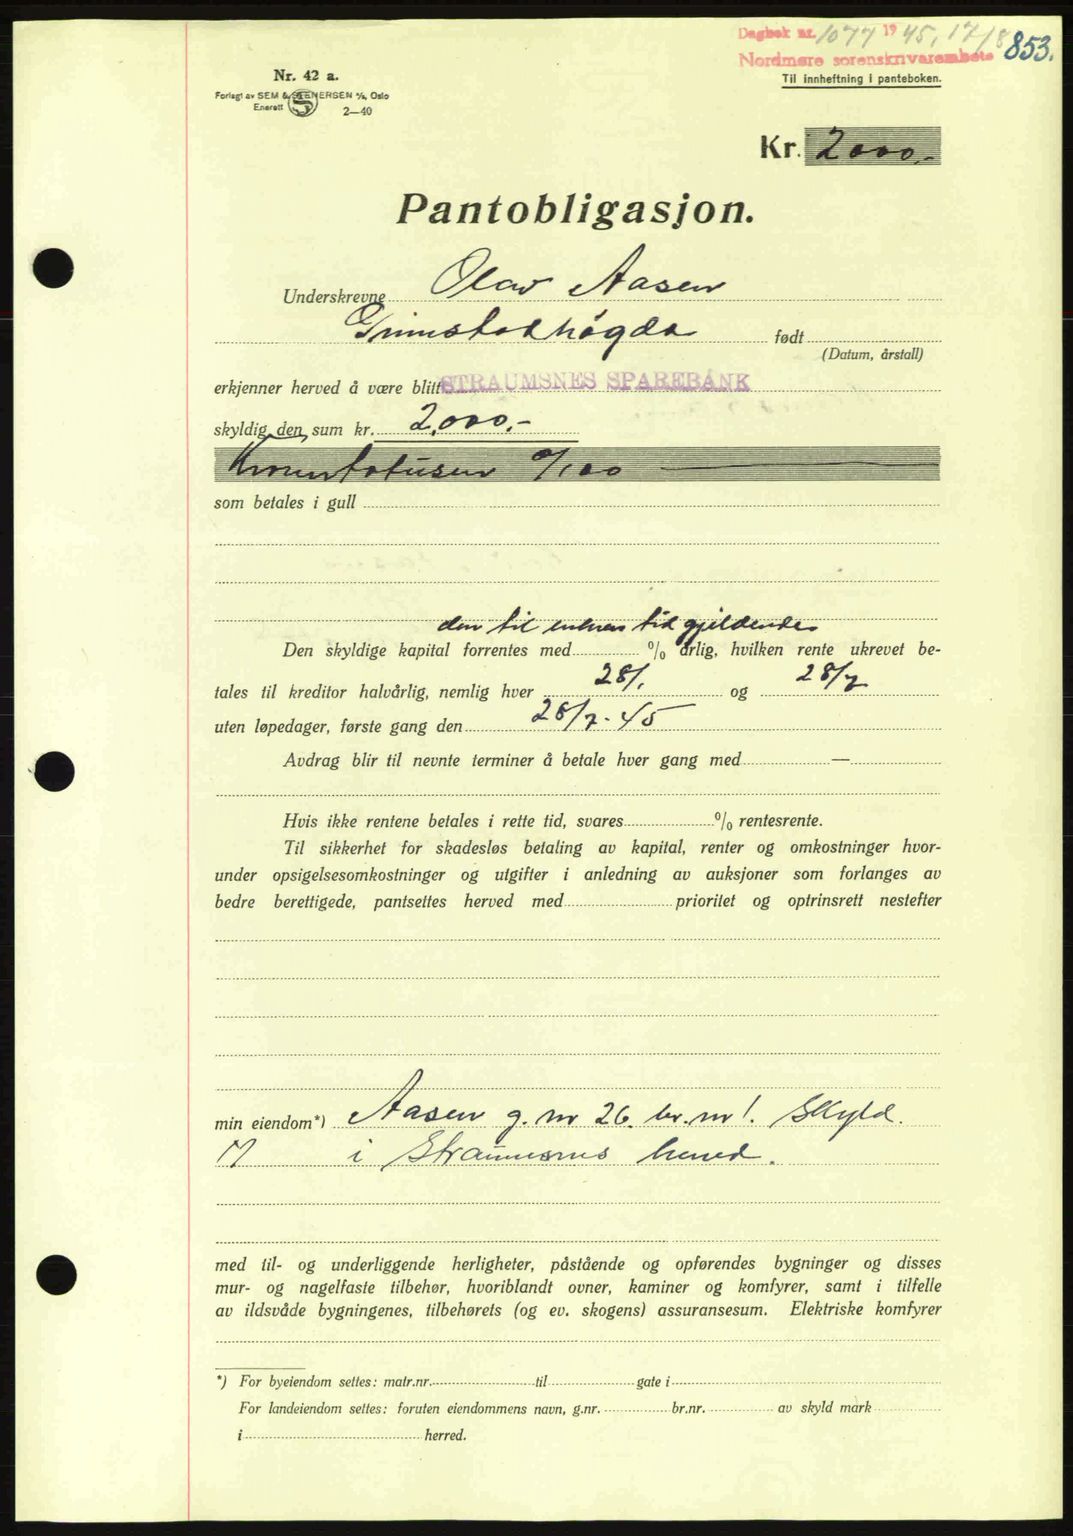 Dagbok nr. 1077 1945, 17/8 853.
Nordmøre sorenskriverembete
Til innheftning i panteboken.
Nr. 42 a.
Forlagt av SEM & STENERSEN A/S, Oslo
Enerett
2—40
Kr. 2000,-
Pantobligasjon.
Underskrevne Olav Aasen
Grimstadhøgda født
(Datum, årstall)
erkjenner herved å være blitt STRAUMSNES SPAREBANK
skyldig den sum kr. 2.000.-
Kronertotusen 0/100
som betales i gull
den til enhver tid gjeldende
Den skyldige kapital forrentes med % årlig, hvilken rente ukrevet be-
tales til kreditor halvårlig, nemlig hver 28/1 og 28/7
uten løpedager, første gang den 28/7-45
Avdrag blir til nevnte terminer å betale hver gang med —
Hvis ikke rentene betales i rette tid, svares % rentesrente.
Til sikkerhet for skadesløs betaling av kapital, renter og omkostninger hvor-
under opsigelsesomkostninger og utgifter i anledning av auksjoner som forlanges av
bedre berettigede, pantsettes herved med prioritet og optrinsrett nestefter
min eiendom*) Aasen g. nr 26. br. nr 1. Skyld.
i Straumsnes herred.
med til- og underliggende herligheter, påstående og opførendes bygninger og disses
mur- og nagelfaste tilbehør, hvoriblandt ovner, kaminer og komfyrer, samt i tilfelle
av ildsvåde bygningenes, tilbehørets (og ev. skogens) assuransesum. Elektriske komfyrer
*) For byeiendom settes: matr.nr. til gate i
For landeiendom settes: foruten eiendommens navn, g.nr. br.nr. av skyld mark
i herred.